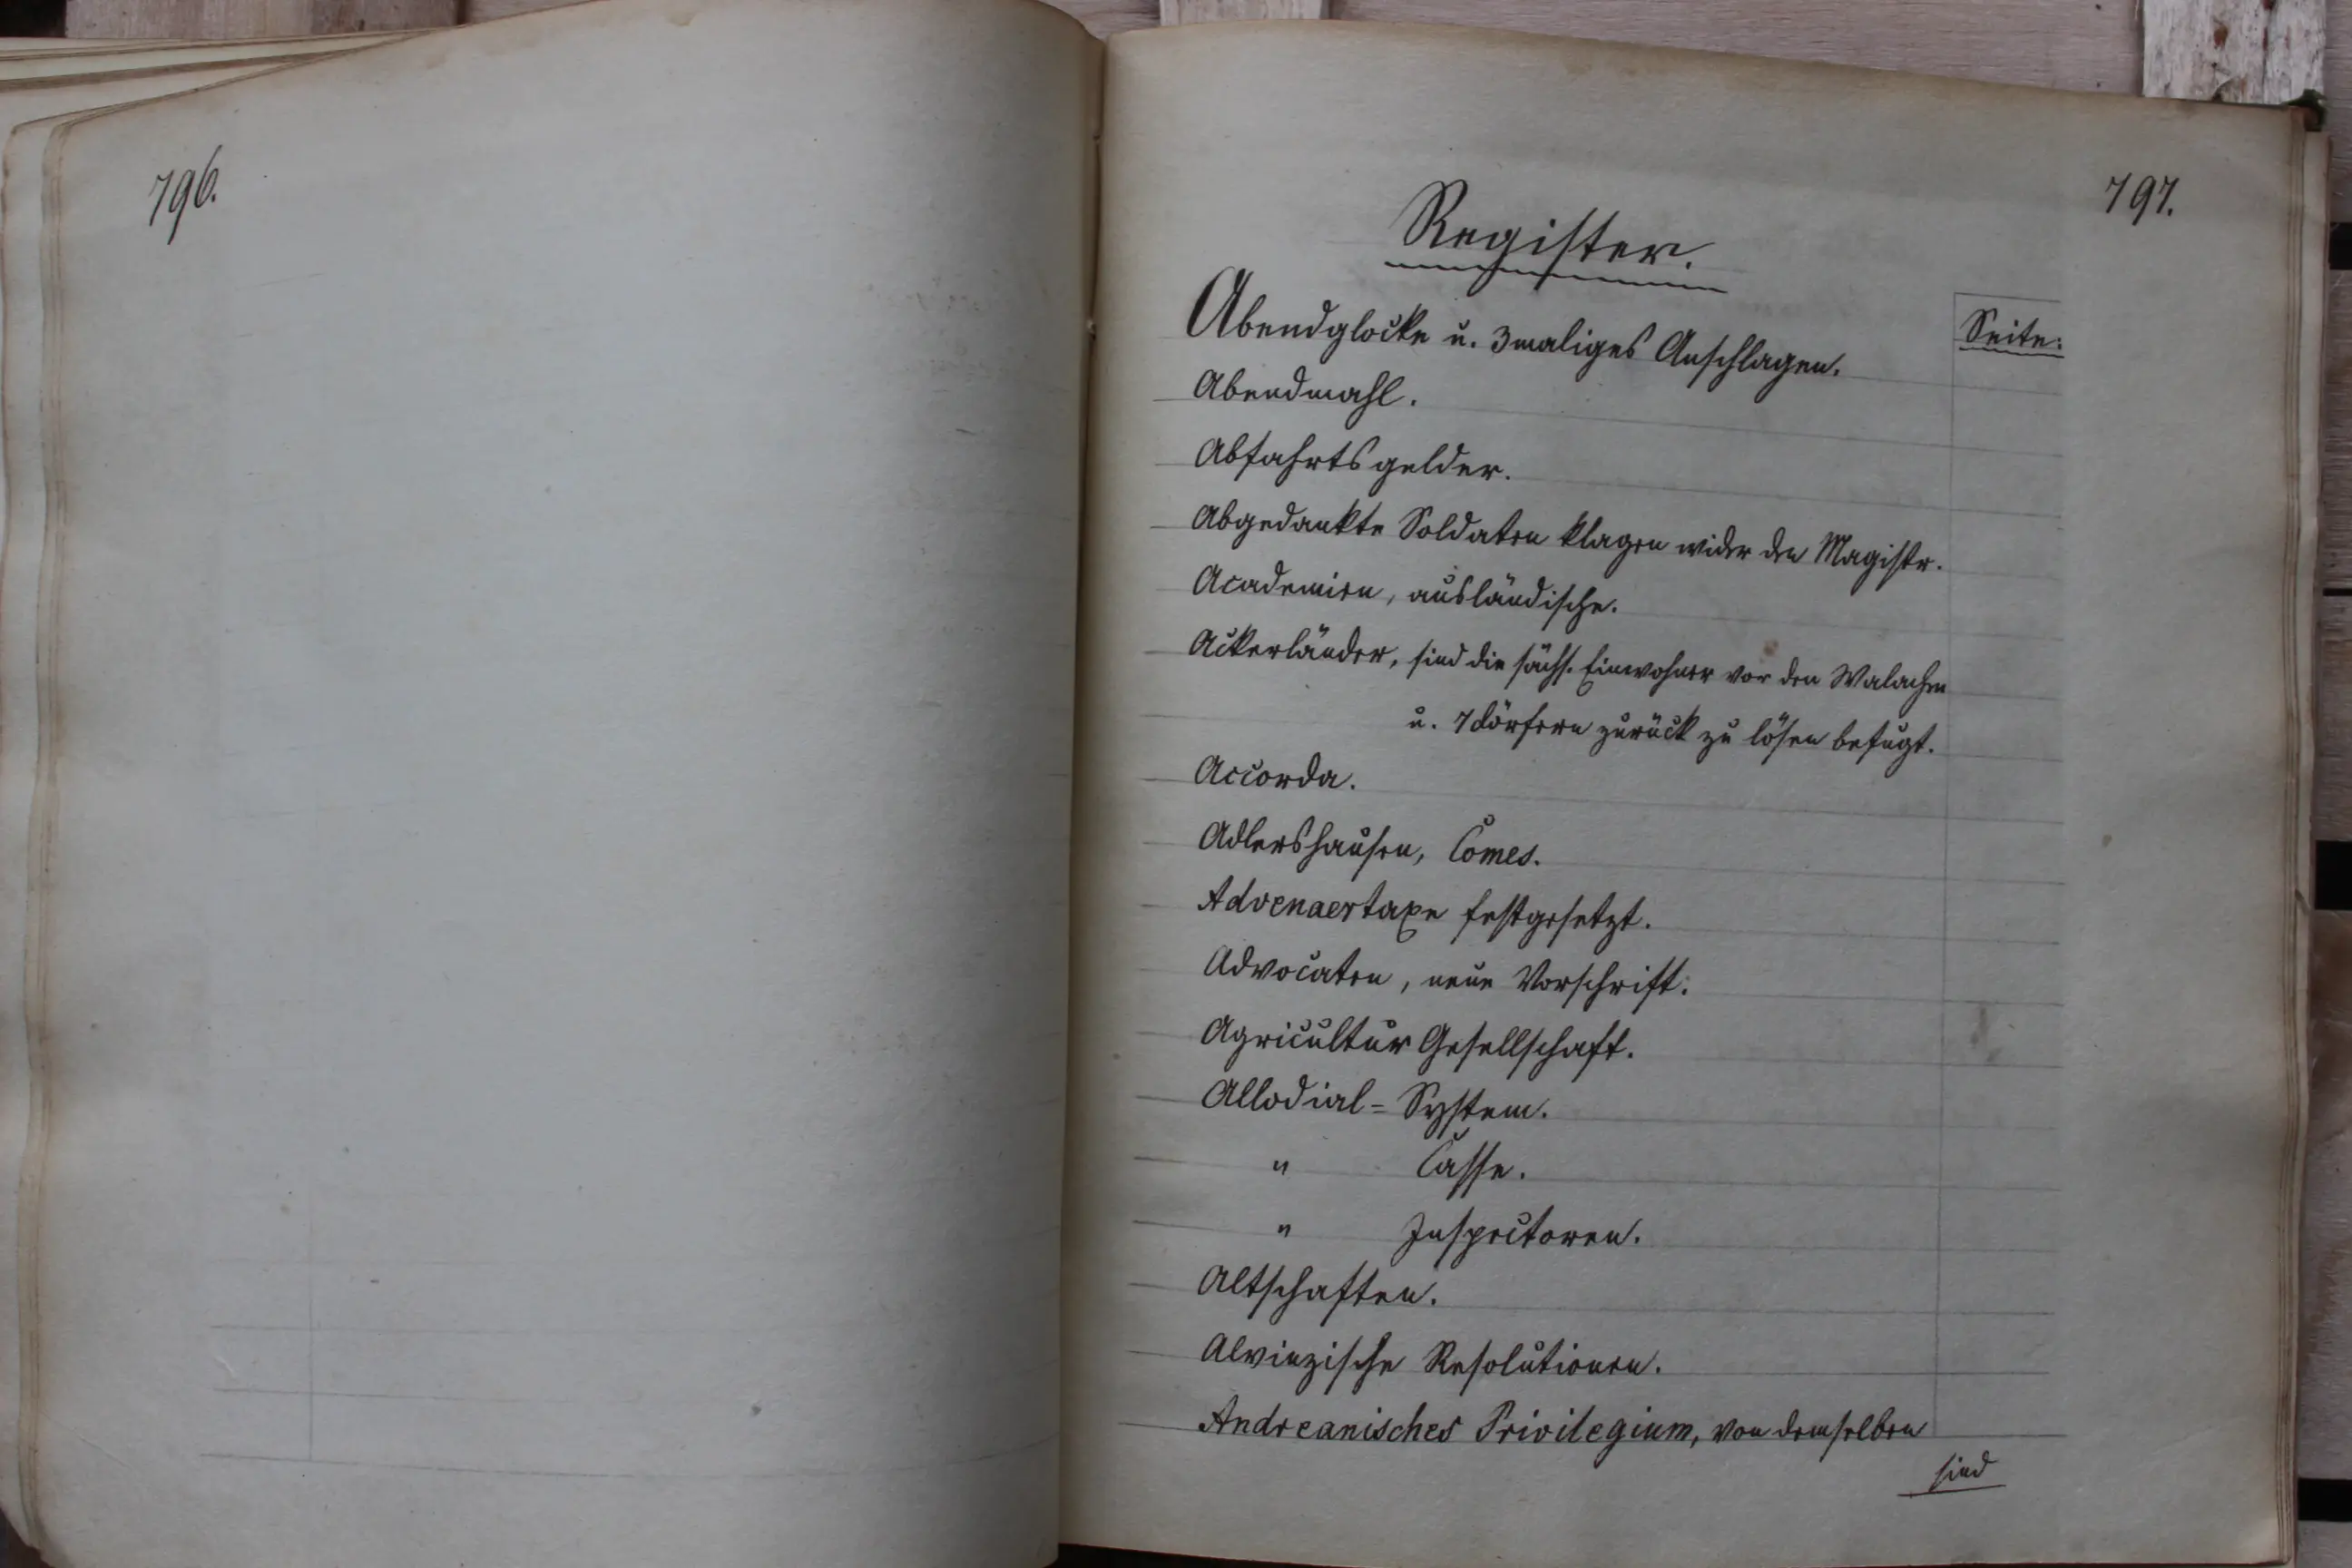 796.
797.
Register.
Seite:
Abendglocke u. 3maliges Anschlagen.
Abendmahl.
Abfahrtsgelder.
Abgedankte Soldaten klagen wider den Magistr.
Academien, ausländische.
Ackerländer, sind die sächs. Einwohner vor den Walachen
u. 7dörfern zurück zu lösen befugt.
Accorda.
Adlershausen, Comes.
Advenaertaxe festgesetzt.
Advocaten, neue Vorschrift.
Agricultur Gesellschaft.
Allodial= System.
" Casse.
" Inspectoren.
Altschaften.
Alvinzische Resolutionen.
Andreanisches Privilegium, von demselben
sind